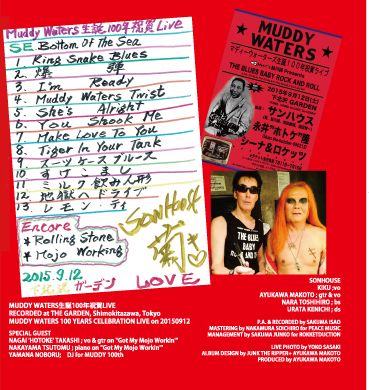 Muddy Waters生誕100年祝賀Live
SE Bottom Of The Sea
1 King Snake Blues
2 爆弾
3 I'm Ready
4 Muddy Waters Twist
5 She's Alright
6 You Shook Me
7 Make Love To You
8 Tiger In Your Tank
9 スーツケースブルース
10 すけこまし
11 ミルク飲み人形
12 地獄へドライブ
13 レモン・ティ
Encore
★Rolling Stone
★Mojo Working
2015.9.12
ガーデン
SONHOUSE
菊
LOVE
MUDDY
WATERS
マディ・ウォーターズ生誕100年祝賀ライブ
THE BLUES BABY ROCK AND ROLL
2015年9月12日(土)
下北沢 GARDEN
サンハウス
永井"ホトケ"隆
シーナ&ロケッツ
THE BLUES
BABY
ROCK
AND RO
MUDDY WATERS生誕100年祝賀LIVE
RECORDED at THE GARDEN, Shimokitazawa, Tokyo
MUDDY WATERS 100 YEARS CELEBRATION LIVE on 20150912
SPECIAL GUEST
NAGAI 'HOTOKE' TAKASHI ; vo & gtr on "Got My Mojo Workin'"
NAKAYAMA TSUTOMU ; piano on "Got My Mojo Workin'"
YAMANA NOBORU; DJ for MUDDY 100th
SONHOUSE
KIKU ;vo
AYUKAWA MAKOTO ; gtr & vo
NARA TOSHIHIRO ; bs
URATA KENICHI ; ds
P.A. & RECORDING by SAKUMA ISAO
MASTERING by NAKAMURA SOICHIRO for PEACE MUSIC
MANAGEMENT by SAKUMA JUNKO for ROKKETDUCTION
LIVE PHOTO by YOKO SASAKI
ALBUM DESIGN by JUNK THE RIPPER+ AYUKAWA MAKOTO
PRODUCED by AYUKAWA MAKOTO